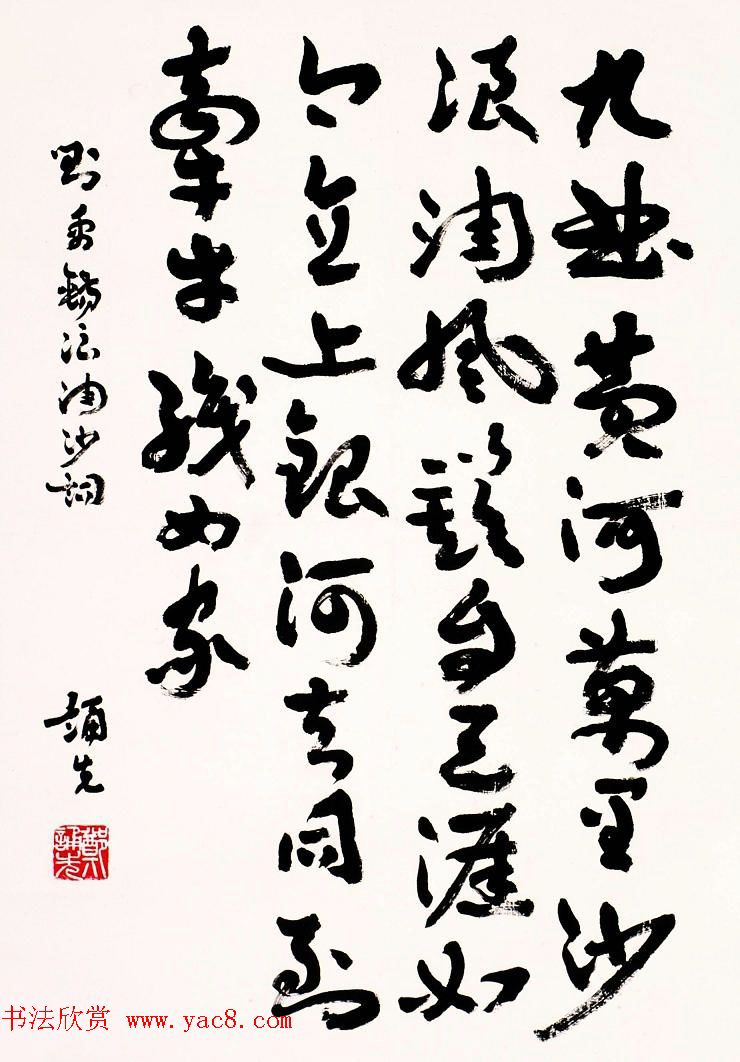 九曲黄河萬里沙
浪淘風簸自天涯如
今直上銀河去同到
牽牛織女家
劉禹錫浪淘沙詞
誦先
鄭誦先
书法欣赏 www.yac8.com